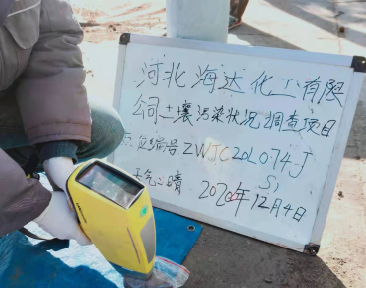 河北海达化工有限
公司土壤污染状况调查项目
编号ZWJC20L074J
S1
天气:晴 2020年12月4日